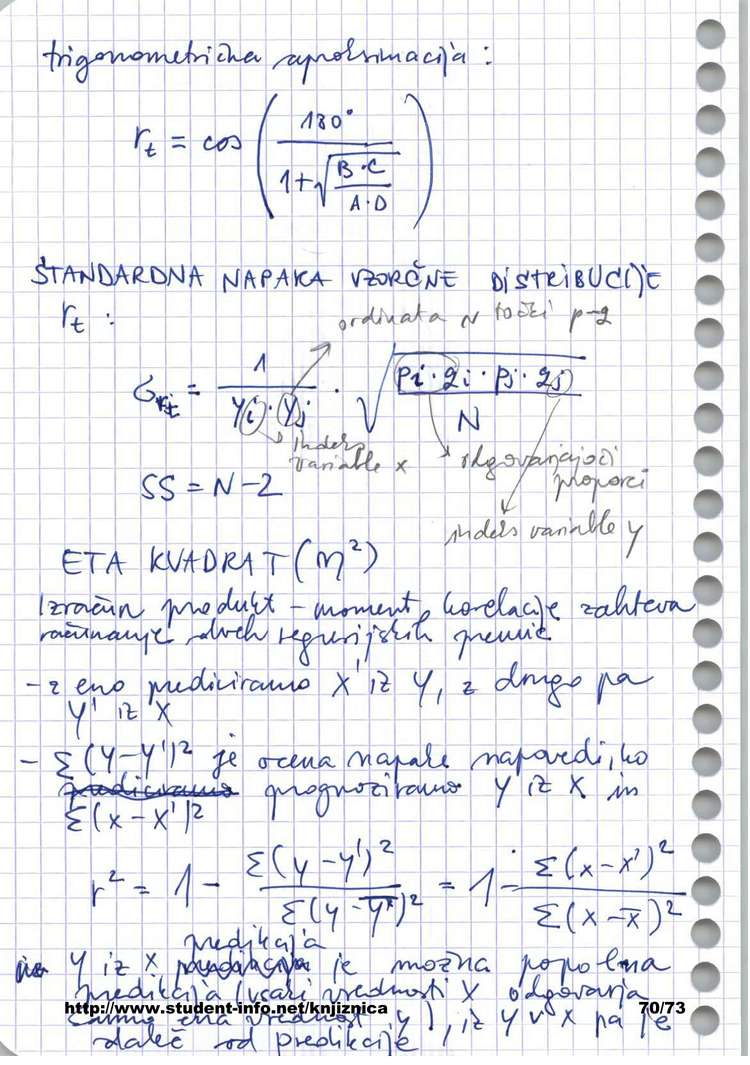 trigonometrična aproksimacija :
r_t = cos ( 180° / (1+√(B·C / A·D)) )
STANDARDNA NAPAKA VZORČNE DISTRIBUCIJE
r_t :
ordinata v točki p-q
σ_{r_t} = 1 / (y_i · y_j) · √(p_i · q_i · p_j · q_j / N)
indeks
variable x
odgovarjajoči
proporci
SS = N - 2
indeks variable y
ETA KVADRAT (η²)
Izračun produkt - moment korelacije zahteva
računanje dveh regresijskih premic
- z eno prediciramo X' iz Y, z drugo pa
Y' iz X
- Σ(Y-Y')² je ocena napake napovedi, ko
prognoziramo Y iz X in
Σ(X-X')²
r² = 1 - Σ(y-y')² / Σ(y-ȳ)² = 1 - Σ(x-x')² / Σ(x-x̄)²
predikcija
Y iz X je možna popolna
predikcija (vsaki vrednosti X odgovarja
samo ena vrednost y), iz Y v X pa je
daleč od predikcije
http://www.student-info.net/knjiznica
70/73